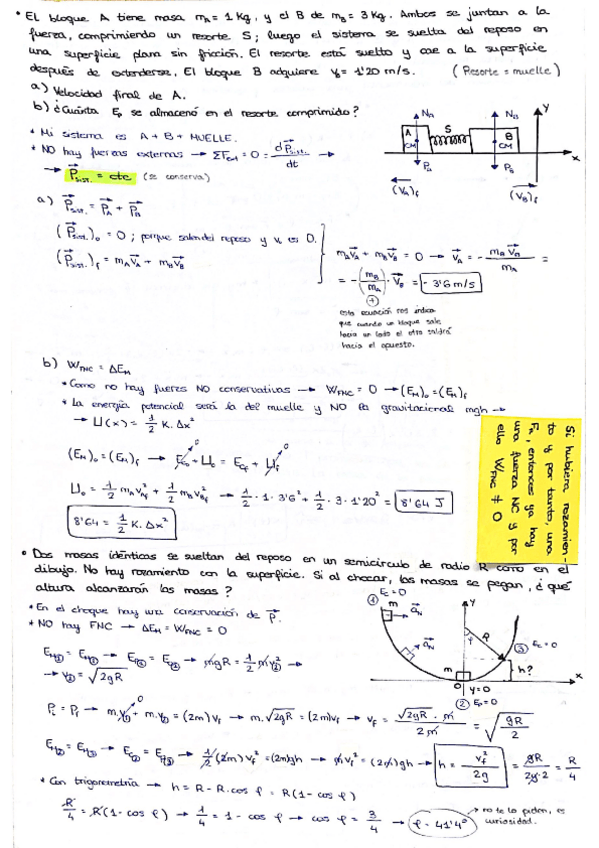 • El bloque A tiene masa mA = 1 Kg, y el B de mB = 3 Kg. Ambos se juntan a la
fuerza, comprimiendo un resorte S; luego el sistema se suelta del reposo en
una superficie plana sin fricción. El resorte está suelto y cae a la superficie
después de extenderse. El bloque B adquiere VB = 1'20 m/s. (Resorte = muelle)
a) Velocidad final de A.
b) ¿Cuánta Ep se almacenó en el resorte comprimido?
* Mi sistema es A + B + MUELLE.
* NO hay fuerzas externas → ΣFext = 0 = dPsist./dt →
→ Psist. = cte (se conserva)
NA
NB
Y
A
S
B
CM
CM
x
PA
PB
(VA)f
(VB)f
a) Psist. = PA + PB
(Psist.)o = 0; porque salen del reposo y v es 0.
(Psist.)f = mA VA + mB VB
mA VA + mB VB = 0 → VA = - mB VB / mA =
= -(mB/mA) · VB = - 3'6 m/s
esta ecuación nos indica
que cuando un bloque sale
hacia un lado el otro saldrá
hacia el opuesto.
b) WFNC = ΔEM
* Como no hay fuerzas NO conservativas → WFNC = 0 → (EM)o = (EM)f
* La energía potencial será la del muelle y NO la gravitacional mgh →
→ U(x) = 1/2 K · Δx²
(EM)o = (EM)f → Eco + Uo = Ecf + Uf
Uo = 1/2 mA VAf² + 1/2 mB VBf² → 1/2 · 1 · 3'6² + 1/2 · 3 · 1'20² = 8'64 J
8'64 = 1/2 K · Δx²
Si hubiera rozamien-
to y por tanto, una
FR, entonces ya hay
una fuerza NC y por
ello WFNC ≠ 0
• Dos masas idénticas se sueltan del reposo en un semicirculo de radio R como en el
dibujo. No hay rozamiento con la superficie. Si al chocar, las masas se pegan, ¿qué
altura alcanzarán las masas?
* En el choque hay una conservación de P.
* NO hay FNC → ΔEM = WFNC = 0
① Ec = 0
m
aN
aN
Y
R
φ
③ Ec = 0
h?
m
O
Y=0
x
② Ep = 0
EM① = EM② → Ep① = Ec② → mgR = 1/2 mv² →
→ v② = √2gR
Po = Pf → m·v + m·v = (2m) vf → m·√2gR = (2m) vf → vf = √2gR · m / 2m = √gR/2
EM② = EM③ → Ec② = Ep③ → 1/2 (2m) vf² = (2m)gh → m vf² = (2m) gh → h = vf²/2g = gR/2g·2 = R/4
* Con trigonometría → h = R - R·cos φ = R(1 - cos φ)
R/4 = R(1 - cos φ) → 1/4 = 1 - cos φ → cos φ = 3/4 → φ = 41'4º
→ no te lo piden, es
curiosidad.